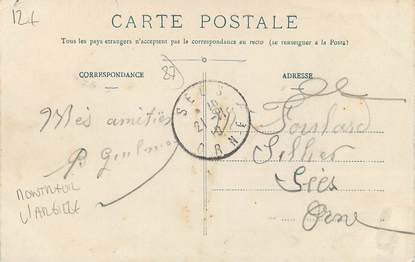 124
CARTE POSTALE
Tous les pays étrangers n'acceptent pas la correspondance au recto (se renseigner à la Poste)
CORRESPONDANCE
87
ADRESSE
SÉES
ORNE
Mes amitiés
Sellier
Sées
Orne